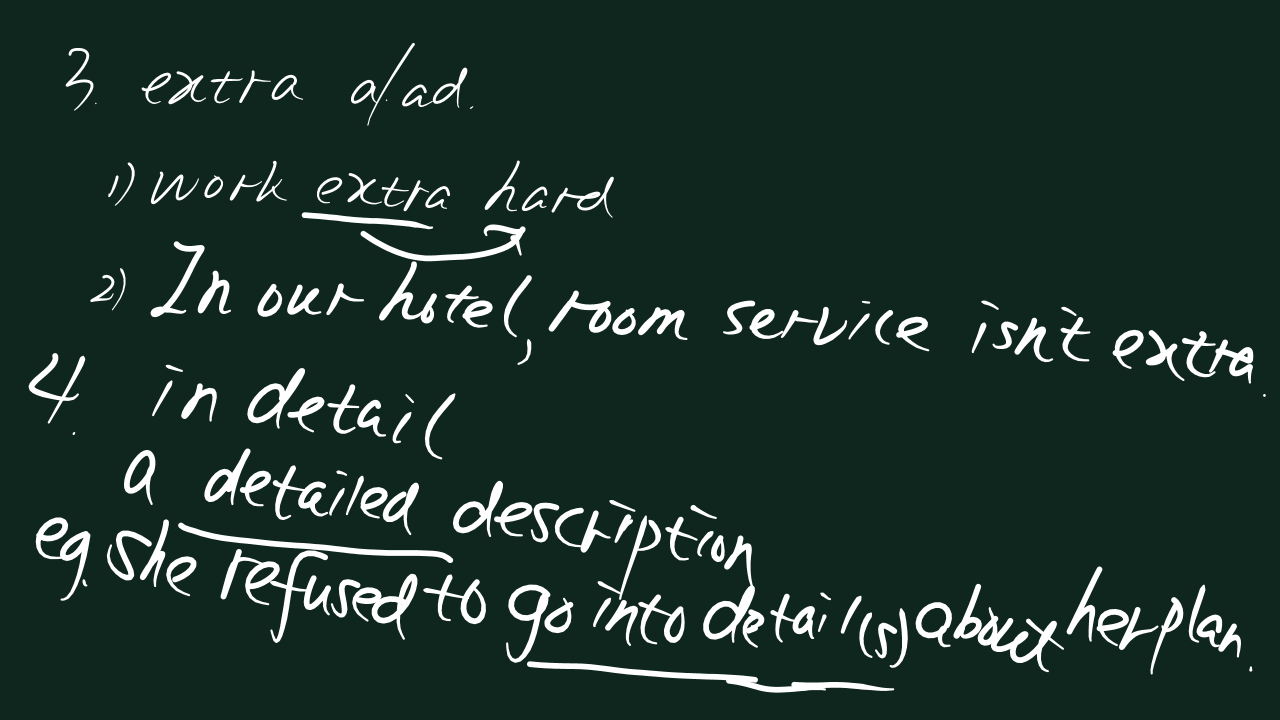 3. extra a./ad.
1) work extra hard
2) In our hotel, room service isn't extra.
4. in detail
a detailed description
eg. she refused to go into detail(s) about her plan.